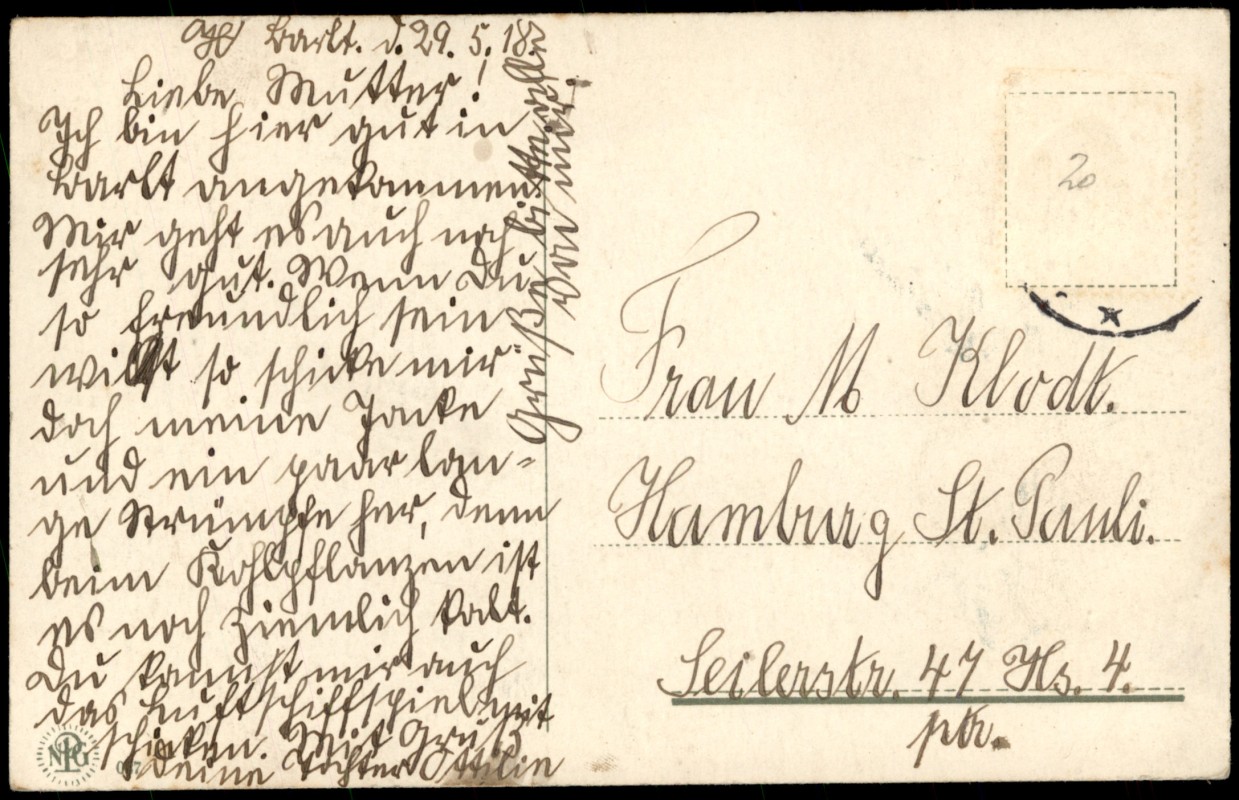 Barlt. d. 29. 5. 18.
Liebe Mutter!
Ich bin hier gut in
Barlt angekommen.
Mir geht es auch noch
sehr gut. Wenn Du
so freundlich sein
willst so schicke mir
doch meine Jacke
und ein paar lan-
ge Strümpfe her, denn
beim Kohlpflanzen ist
es noch ziemlich kalt.
Du kannst mir auch
das Luftschiffspiel mit
schicken. Mit Gruß
deine Tochter Ottilie
Grüße bitte alle
von mir!
20
Frau M Klodt.
Hamburg St. Pauli.
Seilerstr. 47 Hs. 4.
ptr.
NPG